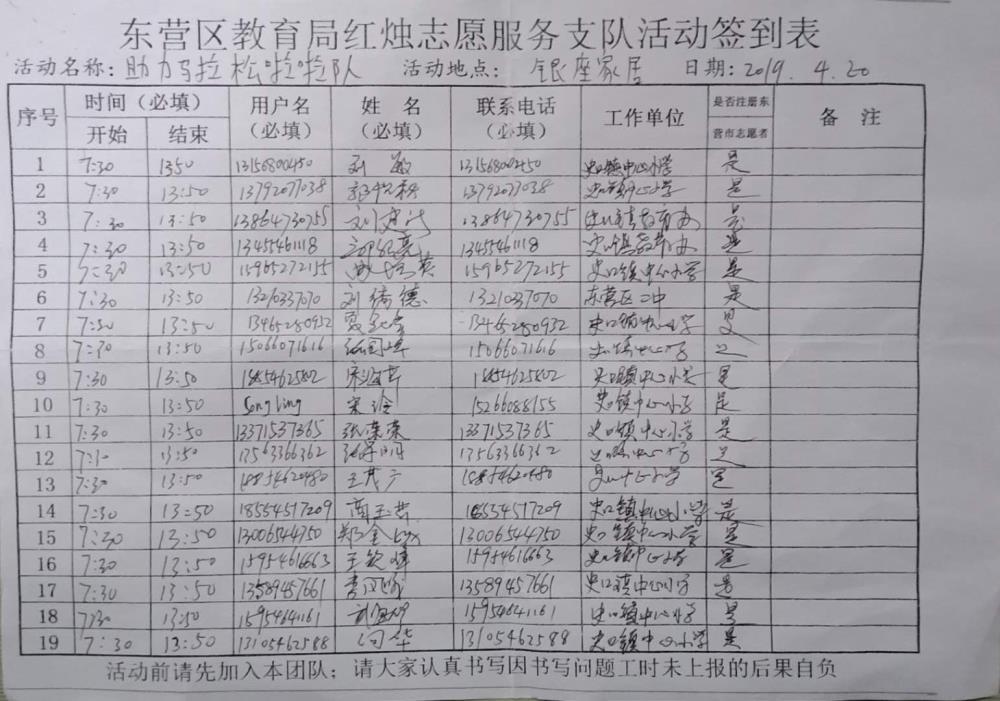 东营区教育局红烛志愿服务支队活动签到表
活动名称：助力马拉松啦啦队 活动地点：银座家居 日期：2019.4.20
序号 时间（必填） 用户名（必填） 姓名（必填） 联系电话（必填） 工作单位 是否注册东营市志愿者 备注
开始 结束
1 7:30 1350 13156800450 刘敏 13156800450 史口镇中心小学 是
2 7:30 13:50 13792077038 13792077038 史口镇中心小学 是
3 7:30 13:50 13864730755 13864730755 史口镇教育办 是
4 7:30 13:50 13455461118 13455461118 史口镇教育办 是
5 7:30 13:50 15965272155 15965272155 史口镇中心小学 是
6 7:30 13:50 13210337070 刘倚德 13210337070 东营区二中 是
7 7:30 13:50 13465280932 13465280932 史口镇中心小学 是
8 7:30 13:50 15066071616 15066071616 史口镇中心小学 是
9 7:30 13:50 史口镇中心小学 是
10 7:30 13:50 Song ling 宋玲 15266088155 史口镇中心小学 是
11 7:30 13:50 13371537365 张荣荣 13371537365 史口镇中心小学 是
12 13:50 13563366362 13563366362 史口镇中心小学 是
13 7:30 13:50 18854620480 18854620480 史口中心小学 是
14 7:30 13:50 18554517209 18554517209 史口镇中心小学 是
15 7:30 13:50 13006544750 13006544750 史口镇中心小学 是
16 7:30 13:50 15954616663 15954616663 史口镇中心小学 是
17 7:30 13:50 13589457661 13589457661 史口镇中心小学 是
18 7:30 13:50 15954641161 15954641161 史口镇中心小学 是
19 7:30 13:50 13105462588 闫华 13105462588 史口镇中心小学 是
活动前请先加入本团队；请大家认真书写因书写问题工时未上报的后果自负